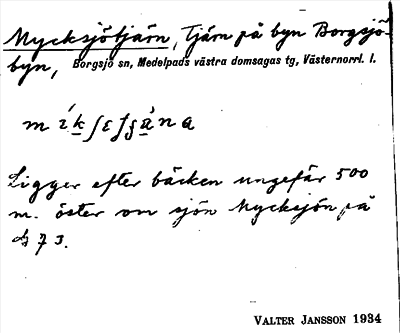 Mycksjötjärn, Tjärn på byn Borgsjö-
byn, Borgsjö sn, Medelpads västra domsagas tg, Västernorrl. l.
Ligger efter bäcken ungefär 500
m. öster om sjön Mycksjön på
73.
VALTER JANSSON 1934